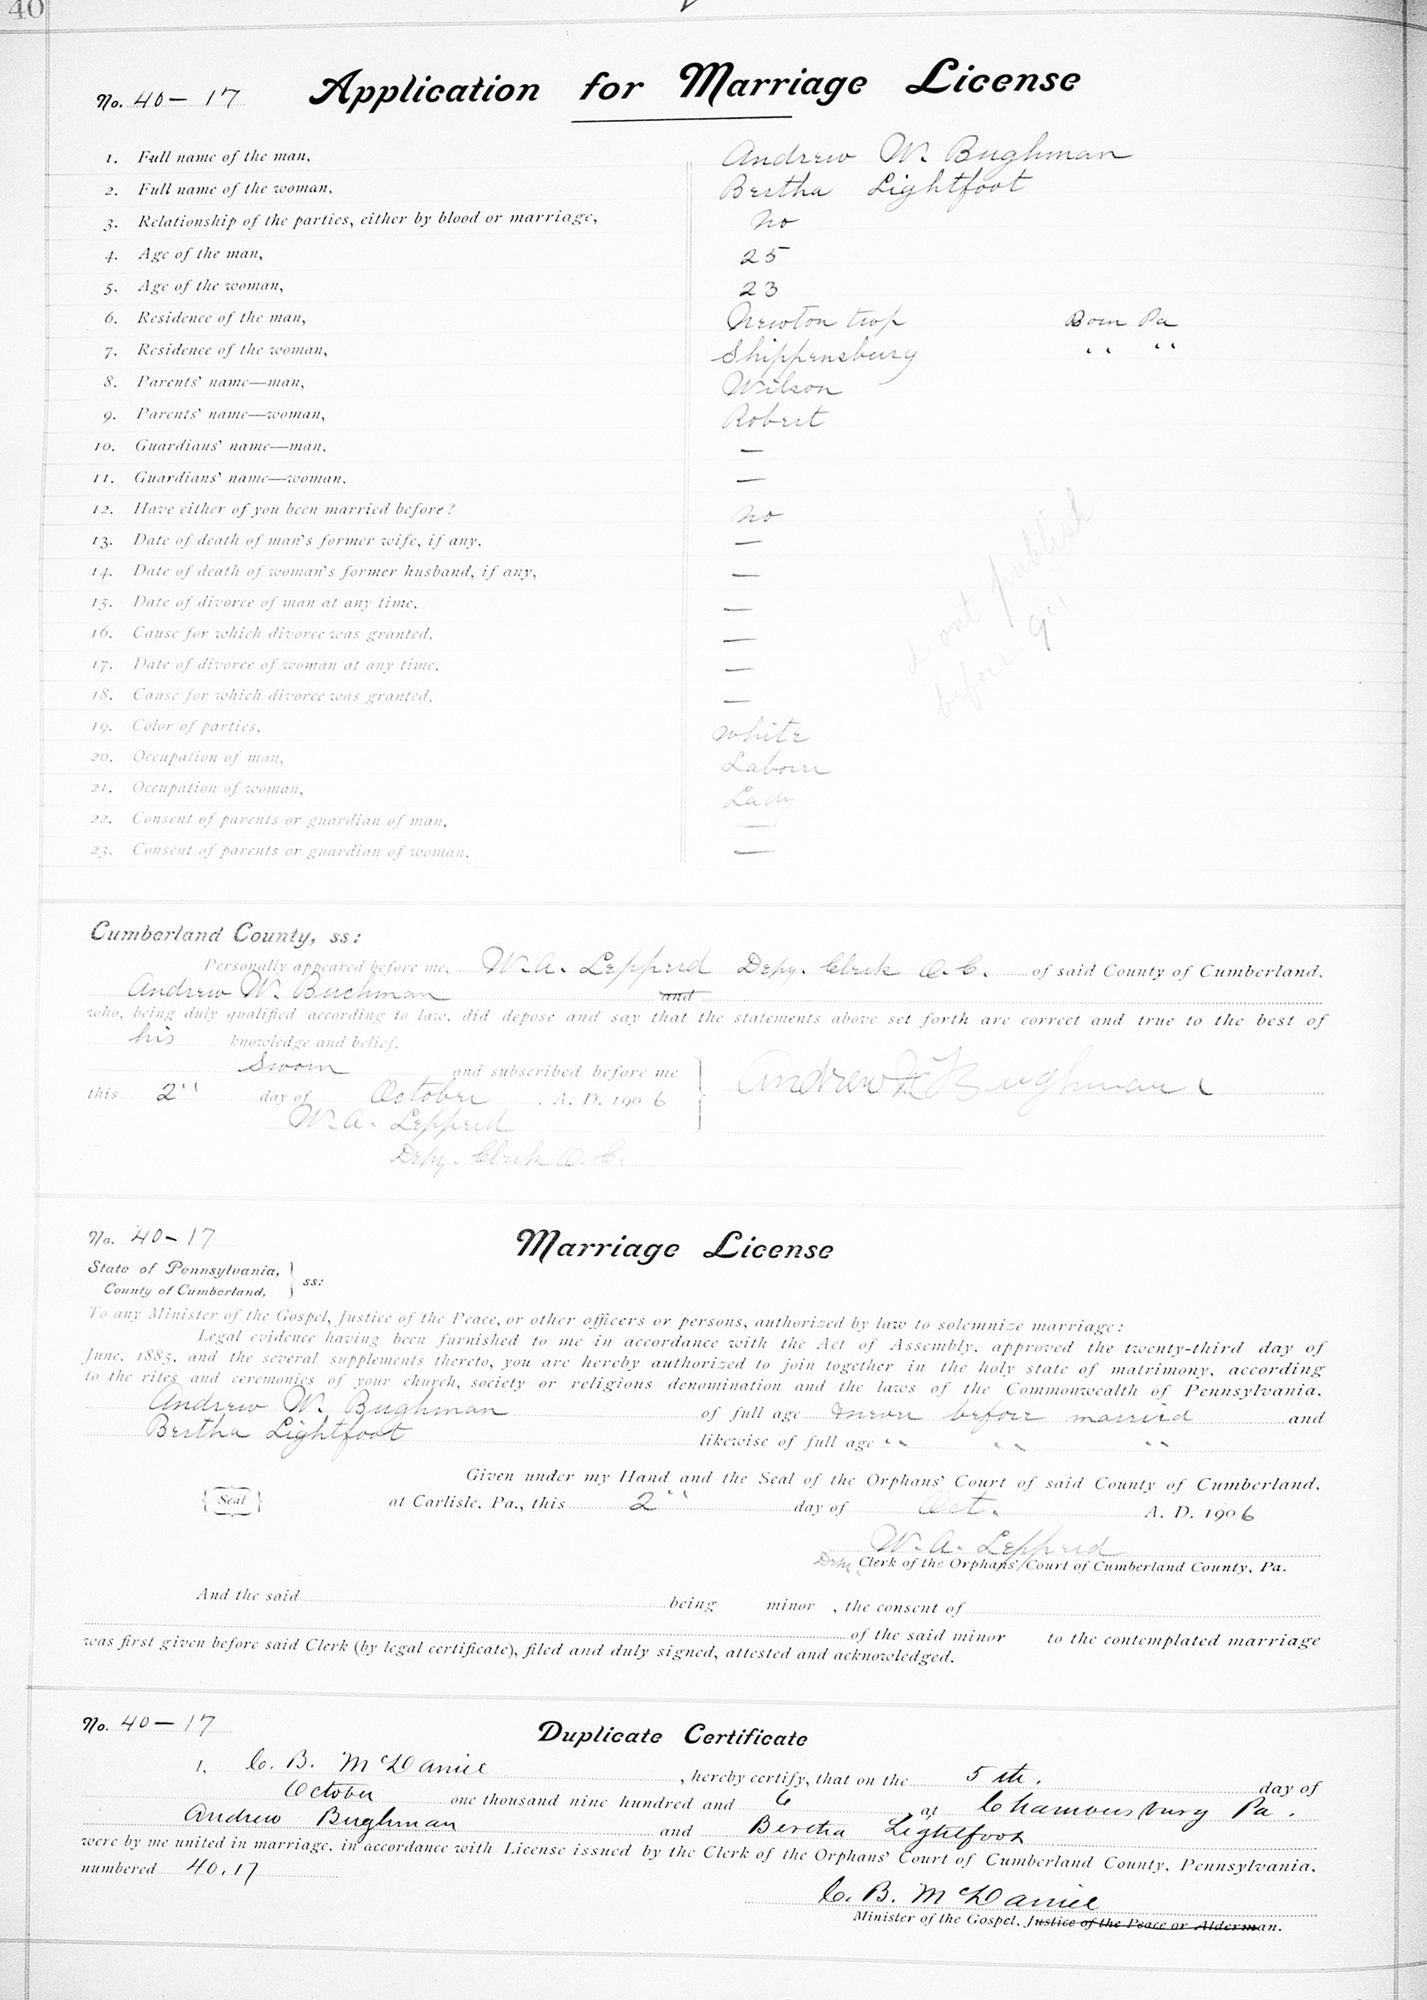 40
No. 40 - 17 Application for Marriage License
1. Full name of the man, Andrew W. Bughman
2. Full name of the woman, Bertha Lightfoot
3. Relationship of the parties, either by blood or marriage, no
4. Age of the man, 25
5. Age of the woman, 23
6. Residence of the man, Newton twp Born Pa
7. Residence of the woman, Shippensburg " "
8. Parents' name—man, Wilson
9. Parents' name—woman, Robert
10. Guardians' name—man, —
11. Guardians' name—woman, —
12. Have either of you been married before? no
13. Date of death of man's former wife, if any, —
14. Date of death of woman's former husband, if any, —
15. Date of divorce of man at any time, —
16. Cause for which divorce was granted, —
17. Date of divorce of woman at any time, —
18. Cause for which divorce was granted, —
19. Color of parties, white
20. Occupation of man, Laborer
21. Occupation of woman, Lady
22. Consent of parents or guardian of man, —
23. Consent of parents or guardian of woman, —
Dont publish
before 9"
Cumberland County, ss:
Personally appeared before me, W. A. Lepperd Depy. Clerk O. C. of said County of Cumberland,
Andrew W. Buchman and
who, being duly qualified according to law, did depose and say that the statements above set forth are correct and true to the best of
his knowledge and belief.
Sworn and subscribed before me
this 2" day of October, A. D. 1906 Andrew W Bughman
W. A. Lepperd
Depy. Clerk O. C.
No. 40 - 17 Marriage License
State of Pennsylvania,
County of Cumberland, ss:
To any Minister of the Gospel, Justice of the Peace, or other officers or persons, authorized by law to solemnize marriage:
Legal evidence having been furnished to me in accordance with the Act of Assembly, approved the twenty-third day of
June, 1885, and the several supplements thereto, you are hereby authorized to join together in the holy state of matrimony, according
to the rites and ceremonies of your church, society or religious denomination and the laws of the Commonwealth of Pennsylvania,
Andrew W. Bughman of full age never before married and
Bertha Lightfoot likewise of full age " " "
Given under my Hand and the Seal of the Orphans' Court of said County of Cumberland,
Seal at Carlisle, Pa., this 2" day of Oct. A. D. 1906
W. A. Lepperd
Depy Clerk of the Orphans' Court of Cumberland County, Pa.
And the said being minor , the consent of
of the said minor to the contemplated marriage
was first given before said Clerk (by legal certificate), filed and duly signed, attested and acknowledged.
No. 40 - 17 Duplicate Certificate
I, C. B. McDaniel, hereby certify, that on the 5th. day of
October one thousand nine hundred and 6, at Chambersburg Pa.
Andrew Bughman and Bertha Lightfoot
were by me united in marriage, in accordance with License issued by the Clerk of the Orphans' Court of Cumberland County, Pennsylvania,
numbered 40.17
C. B. McDaniel
Minister of the Gospel, Justice of the Peace or Alderman.